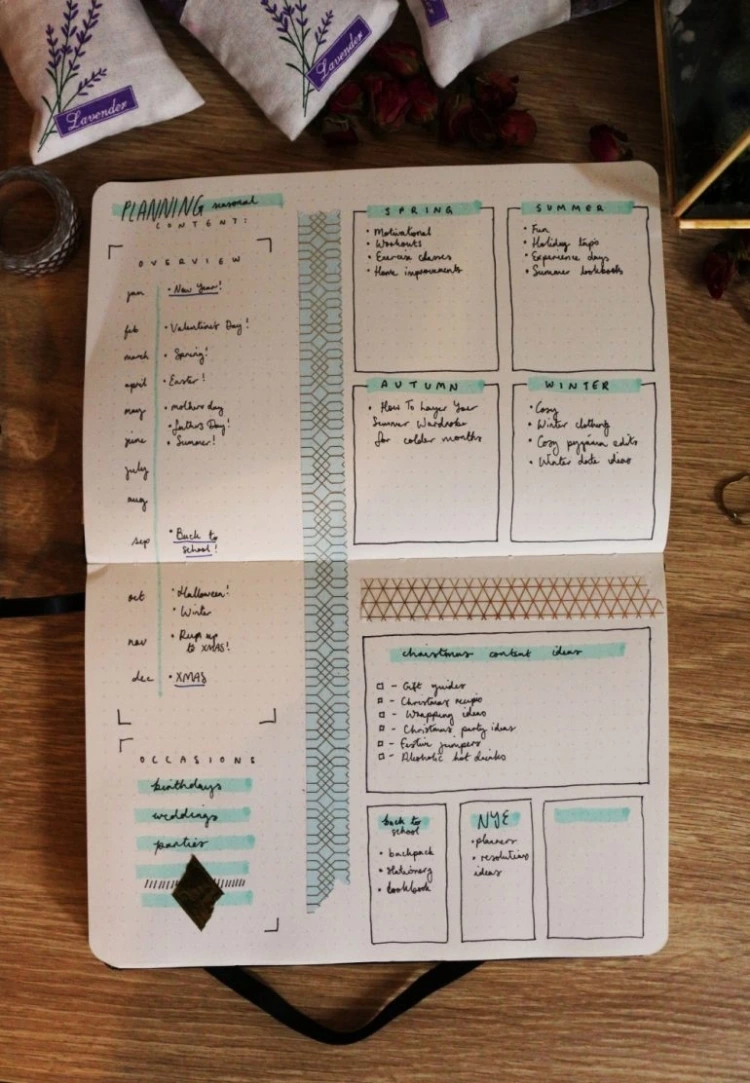 Lavender
Lavender
PLANNING seasonal
CONTENT:
OVERVIEW
jan • New Year!
feb • Valentines Day!
march • Spring!
april • Easter!
may • mothers day
• fathers Day!
june • Summer!
july
aug
sep • Back to
school!
oct • Halloween!
• Winter
nov • Run up
to XMAS!
dec • XMAS
OCCASIONS
birthdays
weddings
parties
SPRING
• Motivational
• Workouts
• Exercise classes
• Home improvements
SUMMER
• Fun
• Holiday
• Experience days
• Summer lookbooks
AUTUMN
• How To Layer Your
Summer Wardrobe
for colder months
WINTER
• Cosy
• Winter clothing
• Cosy edits
• Winter date ideas
christmas content ideas
□ - Gift guides
□ - Christmas
□ - Wrapping ideas
□ - Christmas party ideas
□ - Festive jumpers
□ - Alcoholic hot drinks
back to
school
• backpack
• stationary
• lookbook
NYE
• planners
• resolutions
ideas